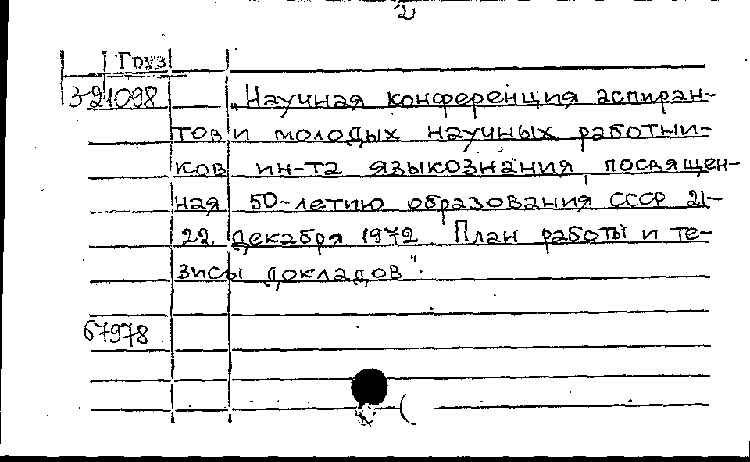 2
Груз
3-21098
„Научная конференция аспиран-
тов и молодых научных работни-
ков ин-та языкознания, посвящен-
ная 50-летию образования СССР 21-
22. Декабря 1972. План работы и те-
зисы докладов".
67978